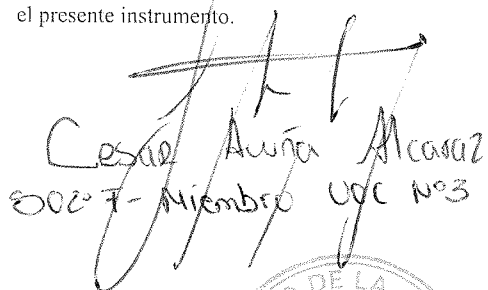 el presente instrumento.
Cesar Acuña Alcaraz
Miembro UOC Nº3
DE LA